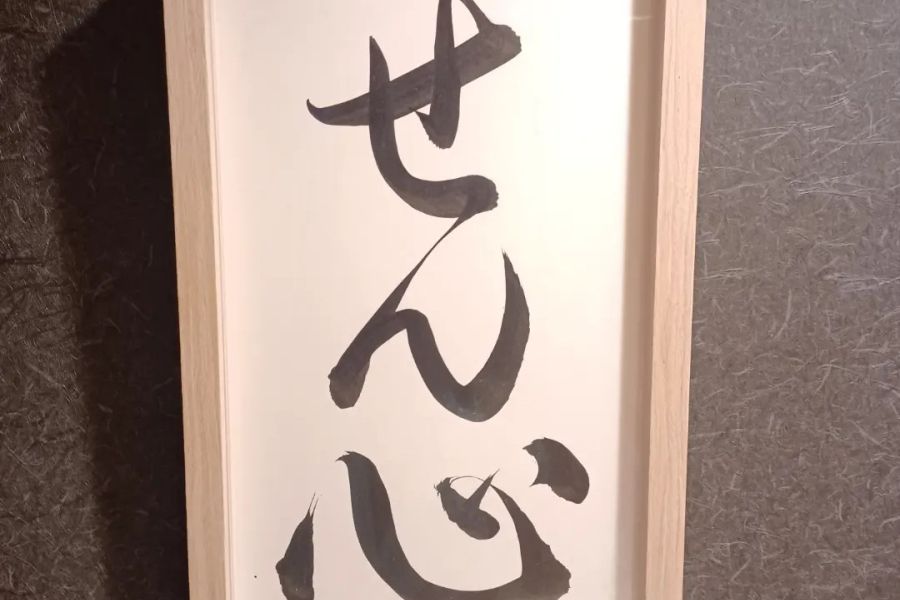 せん心